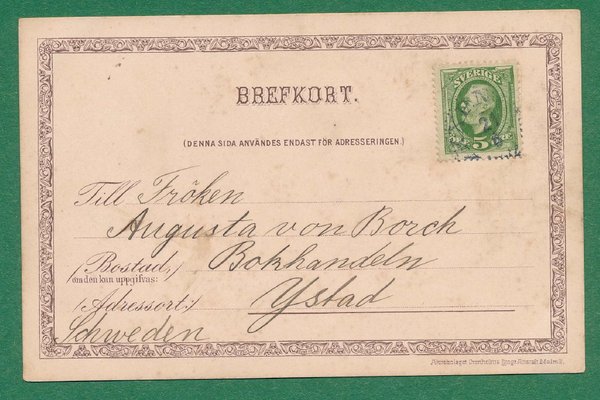 BREFKORT.
SVERIGE
5
(DENNA SIDA ANVÄNDES ENDAST FÖR ADRESSERINGEN.)
Till Fröken
Augusta von Borch
(Bostad,) Bokhandeln
om den kan uppgifvas:
Ystad
(Adressort:)
Schweden